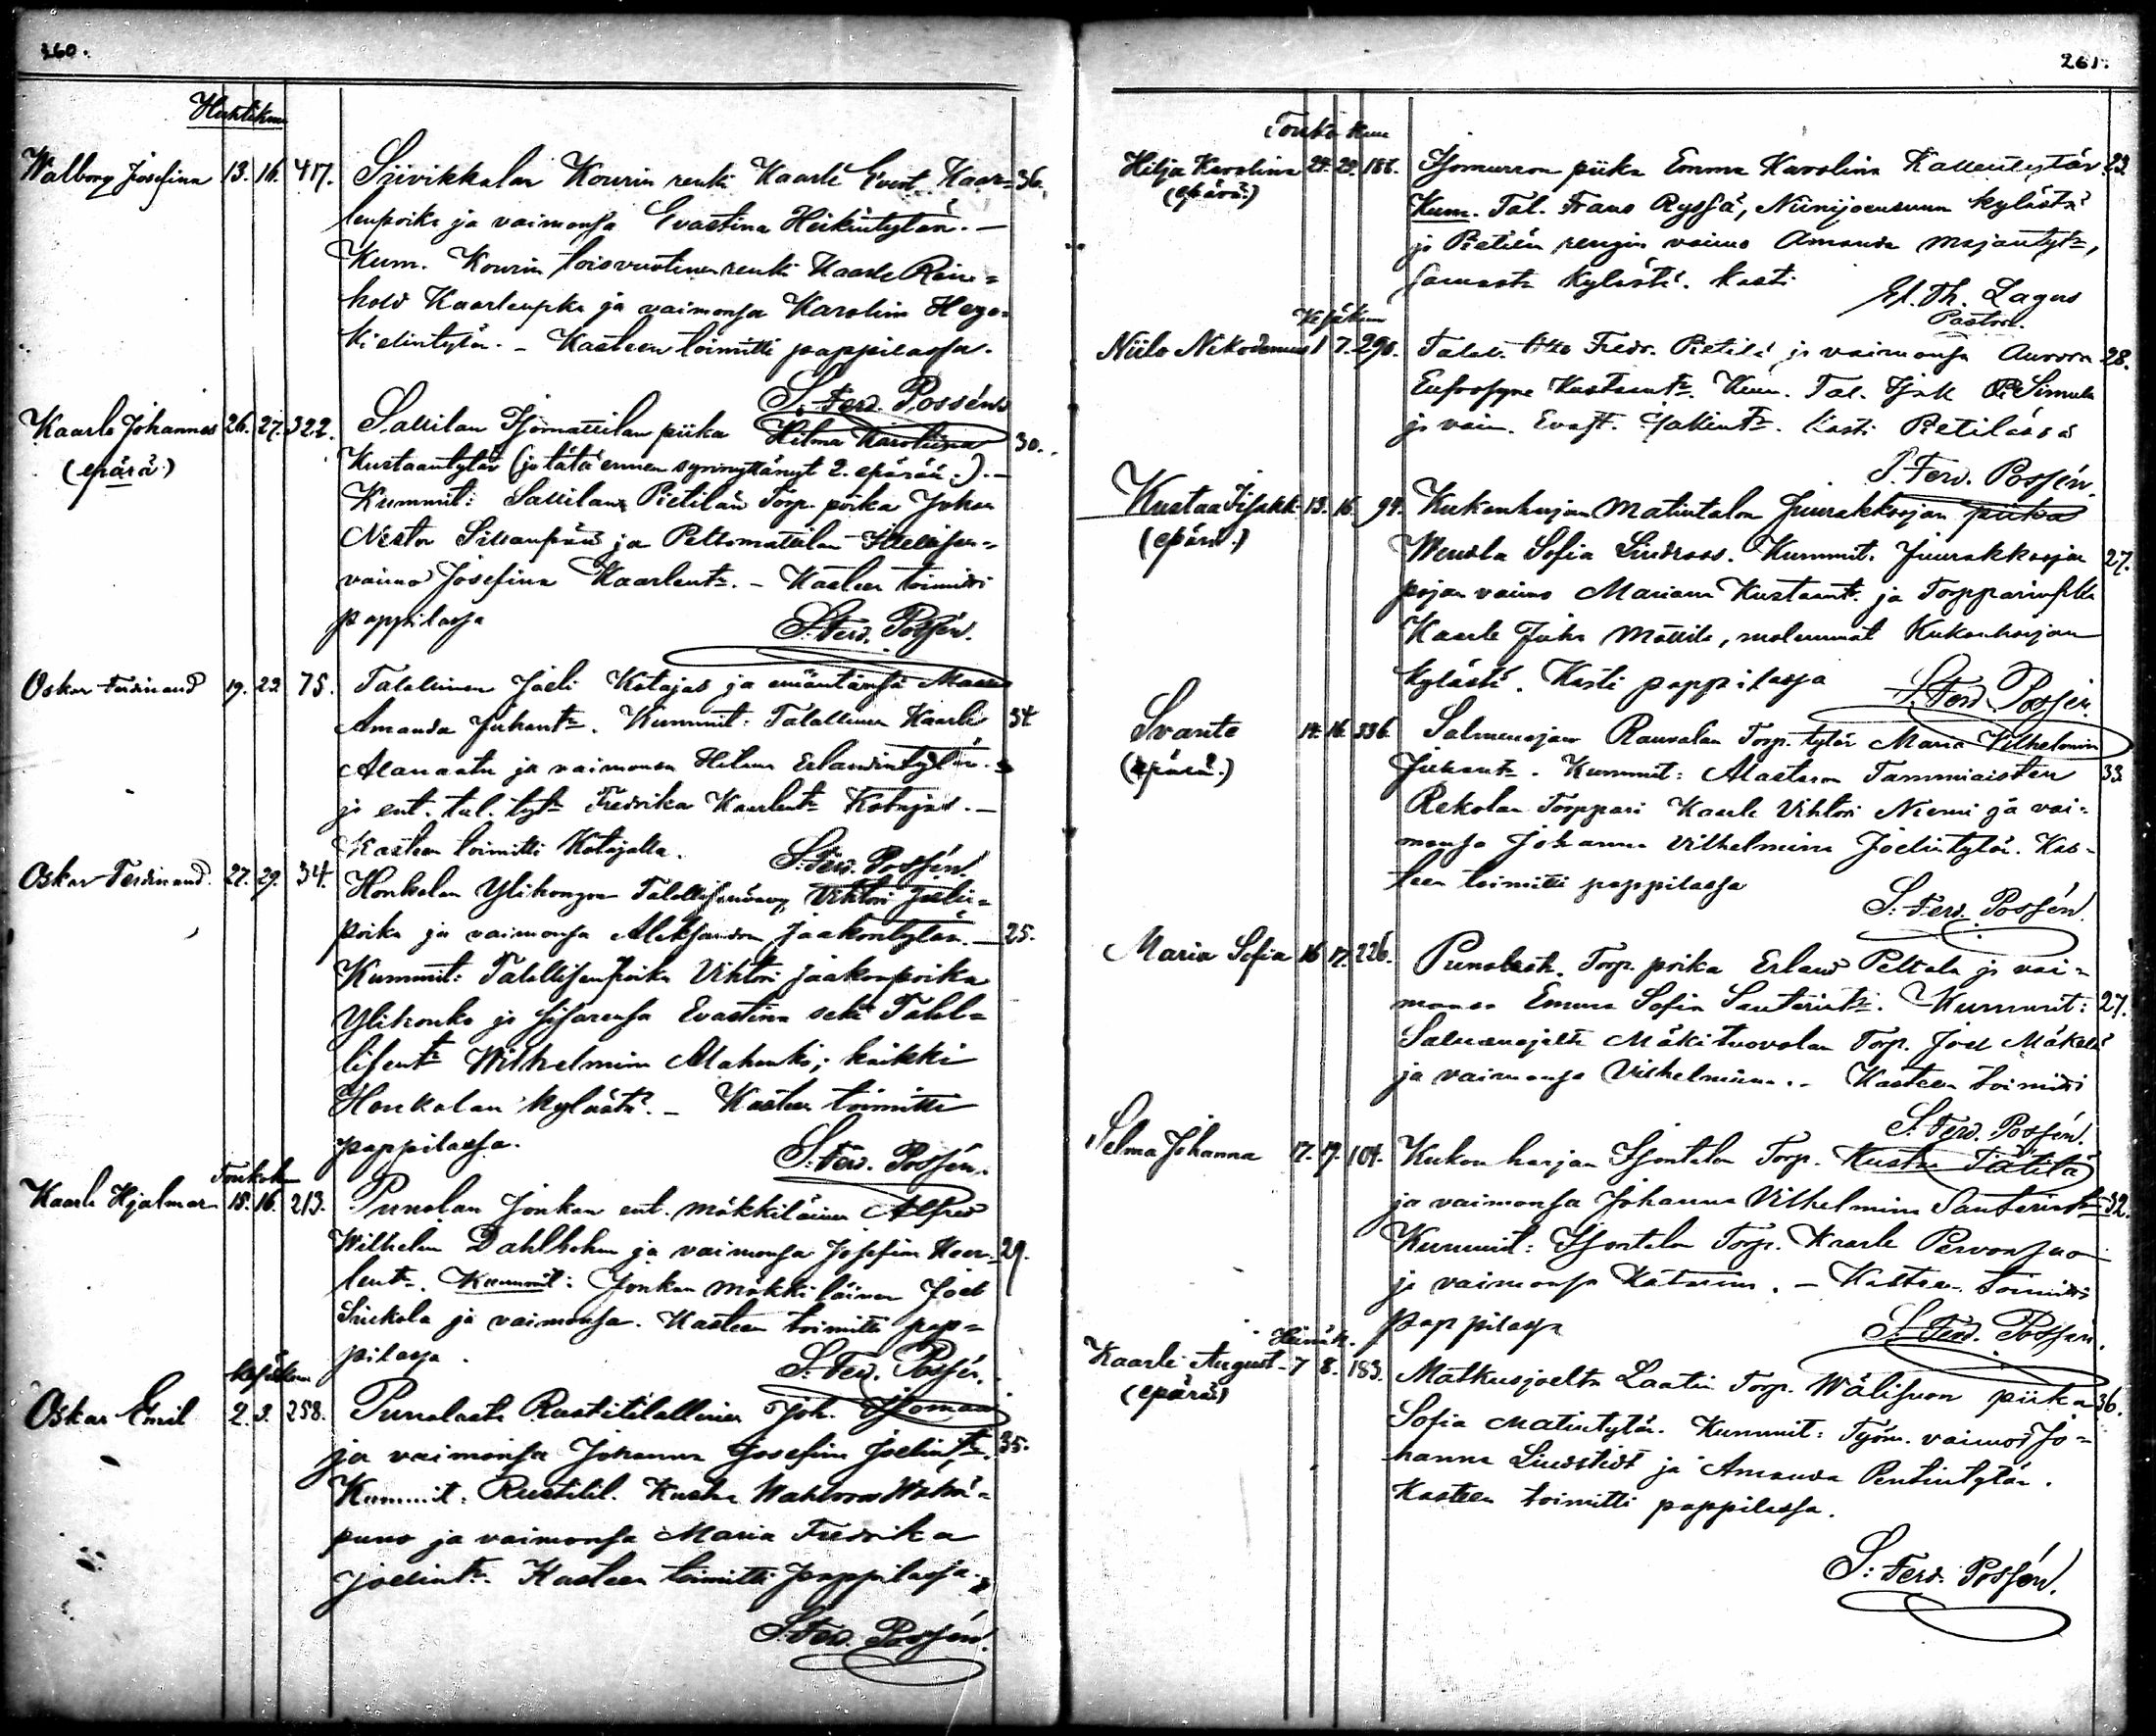 260.
Huhtikuu
Walborg Josefina 13. 16. 417. Siivikkalan Kourin renki Kaarle Evert Kaar= 36.
lenpoika ja vaimonsa Evastina Heikintytär. —
Kum. Kourin loisvuotinen renki Kaarle Rein=
hold Kaarlenpka ja vaimonsa Karolin
Kasteen toimitti pappilassa.
S. Ferd. Possén
Kaarlo Johannes 26. 27. 322. Sallilan piika Hilma Karoliina 30.
(epärä:) Kustaantytär (jo tätä ennen synnyttänyt 2. epärää:). —
Kummit: Sallilan Pietilän Torp. poika Johan
Nestor Sillanpää ja Peltomattilan
vaimo Josefina Kaarlent:. — Kasteen toimitti
pappilassa
S. Ferd. Possén.
Oskar Ferdinand 19. 23. 75. Talallinen Joeli Kotajas ja emäntänsä Maria
Amanda Juhant:. Kummit: Talallinen Kaarle 34.
Alanaatu ja vaimonsa Hilma Erlandintytär.
ja ent. tal. tyt: Fredrika Kaarlent: Kotajas. —
Kasteen toimitti Kotajalla.
S. Ferd. Possén.
Oskar Ferdinand. 27. 29. 34. Honkolan Ylihongon Vihtori Joelin=
poika ja vaimonsa Aleksandra Jaakontytär. — 25.
Kummit: Talallisenpoika Vihtori Jaakonpoika
Ylihonko ja sisarensa Evastina sekä Talal=
lisent: Wilhelmina Alahonko; kaikki
Honkolan kylästä. — Kasteen toimitti
pappilassa.
S. Ferd. Possén.
Toukok
Kaarlo Hjalmar 15. 16. 213. Punolan Jonkan ent. mökkiläinen Alfred
Wilhelm Dahlbohm ja vaimonsa Josefina Kaar= 29.
lent:. Kummit: Jonkan mökkiläinen Joel
ja vaimonsa. Kasteen toimitti pap=
pilassa.
S. Ferd. Possén.
Kesäkuu
Oskar Emil 2. 3. 258. Punolasta Rustitilallinen Joh.
ja vaimonsa Johanna Josefina Joelint:. 35.
Kummit: Rustitil. Kustaa
puno ja vaimonsa Maria Fredrika
Joelint:. Kasteen toimitti pappilassa.
S. Ferd. Possén.
261.
Toukokuu
Hilja Karolina 24. 29. 186. piika Emma Karolina Kallentytär 23.
(epärä:) Kum. Tal. Frans Ryssä, Niinijoensuun kylästä
ja Pietilän rengin vaimo Amanda Majantyt:,
samasta kylästä. Kasti
Th. Lagus
Pastori.
Kesäkuu
Niilo Nikodemus 1 7. 290. Talal. Otto Fredr. Pietilä ja vaimonsa Aurora 28.
Eufrosyne Kustaant:. Kum. Tal. Simula
ja vaim. Evast. Kasti Pietilässä
S. Ferd. Possén.
Kustaa Iisakki 13. 16. 94. Kukonharjan Matintalon Juurakkoojan piika
(epärä:) Wendla Sofia Lindroos. Kummit. Juurakkoojan 27.
pojan vaimo Mariana Kustaant. ja Torpparinpka
Kaarle Juho Mattila, molemmat Kukonharjan
kylästä. Kasti pappilassa
S. Ferd. Possén.
Svante 14. 16. 336. Salmenojan Rauvolan Torp. tytär Maria Vilhelmina
(epärä:) Juhant:. Kummit: Alastaron Tammiaisten 33.
Rekolan Torppari Kaarle Vihtori Niemi ja vai=
monsa Johanna Vilhelmina Joelintytär. Kas=
teen toimitti pappilassa
S. Ferd. Possén.
Maria Sofia 16 17. 226. Punolasta. Torp. poika Erland Peltola ja vai=
monsa Emma Sofia Santerint:. Kummit: 27.
Salmenojalta Mäkituovolan Torp. Joel Mäkelä
ja vaimonsa Vilhelmiina. — Kasteen toimitti
S. Ferd. Possén.
Selma Johanna 17. 19. 104. Kukonharjan Torp. Kustaa Tätilä
ja vaimonsa Johanna Vilhelmina Santerint: 32.
Kummit: Torp. Kaarle
ja vaimonsa Katarina. — Kasteen toimitti
pappilassa
S. Ferd. Possén.
Heinäk.
Kaarle August 7 8. 183. Matkusjoelta Laatin Torp. Wälisuon piika 36.
(epärä:) Sofia Matintytär. Kummit: Työm. vaimot Jo=
hanna Lindstedt ja Amanda Penttintytär.
Kasteen toimitti pappilassa.
S. Ferd. Possén.